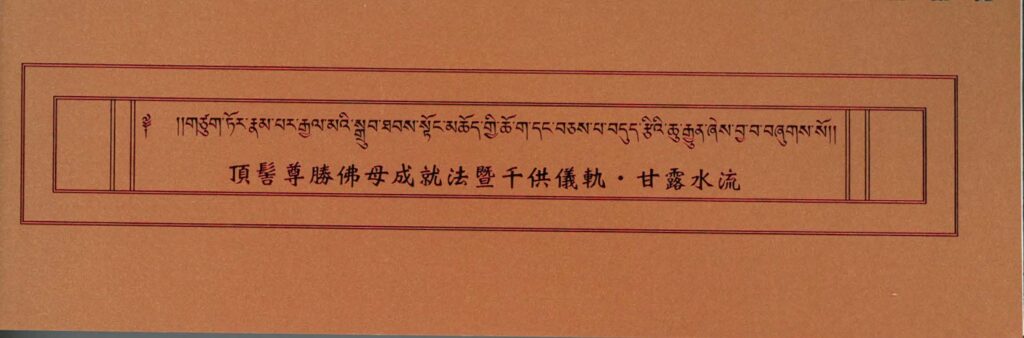 ༄༅ །།གཙུག་ཏོར་རྣམ་པར་རྒྱལ་མའི་སྒྲུབ་ཐབས་སྟོང་མཆོད་ཀྱི་ཆོ་ག་དང་བཅས་པ་བདུད་རྩིའི་ཆུ་རྒྱུན་ཞེས་བྱ་བ་བཞུགས་སོ།།
頂髻尊勝佛母成就法暨千供儀軌·甘露水流